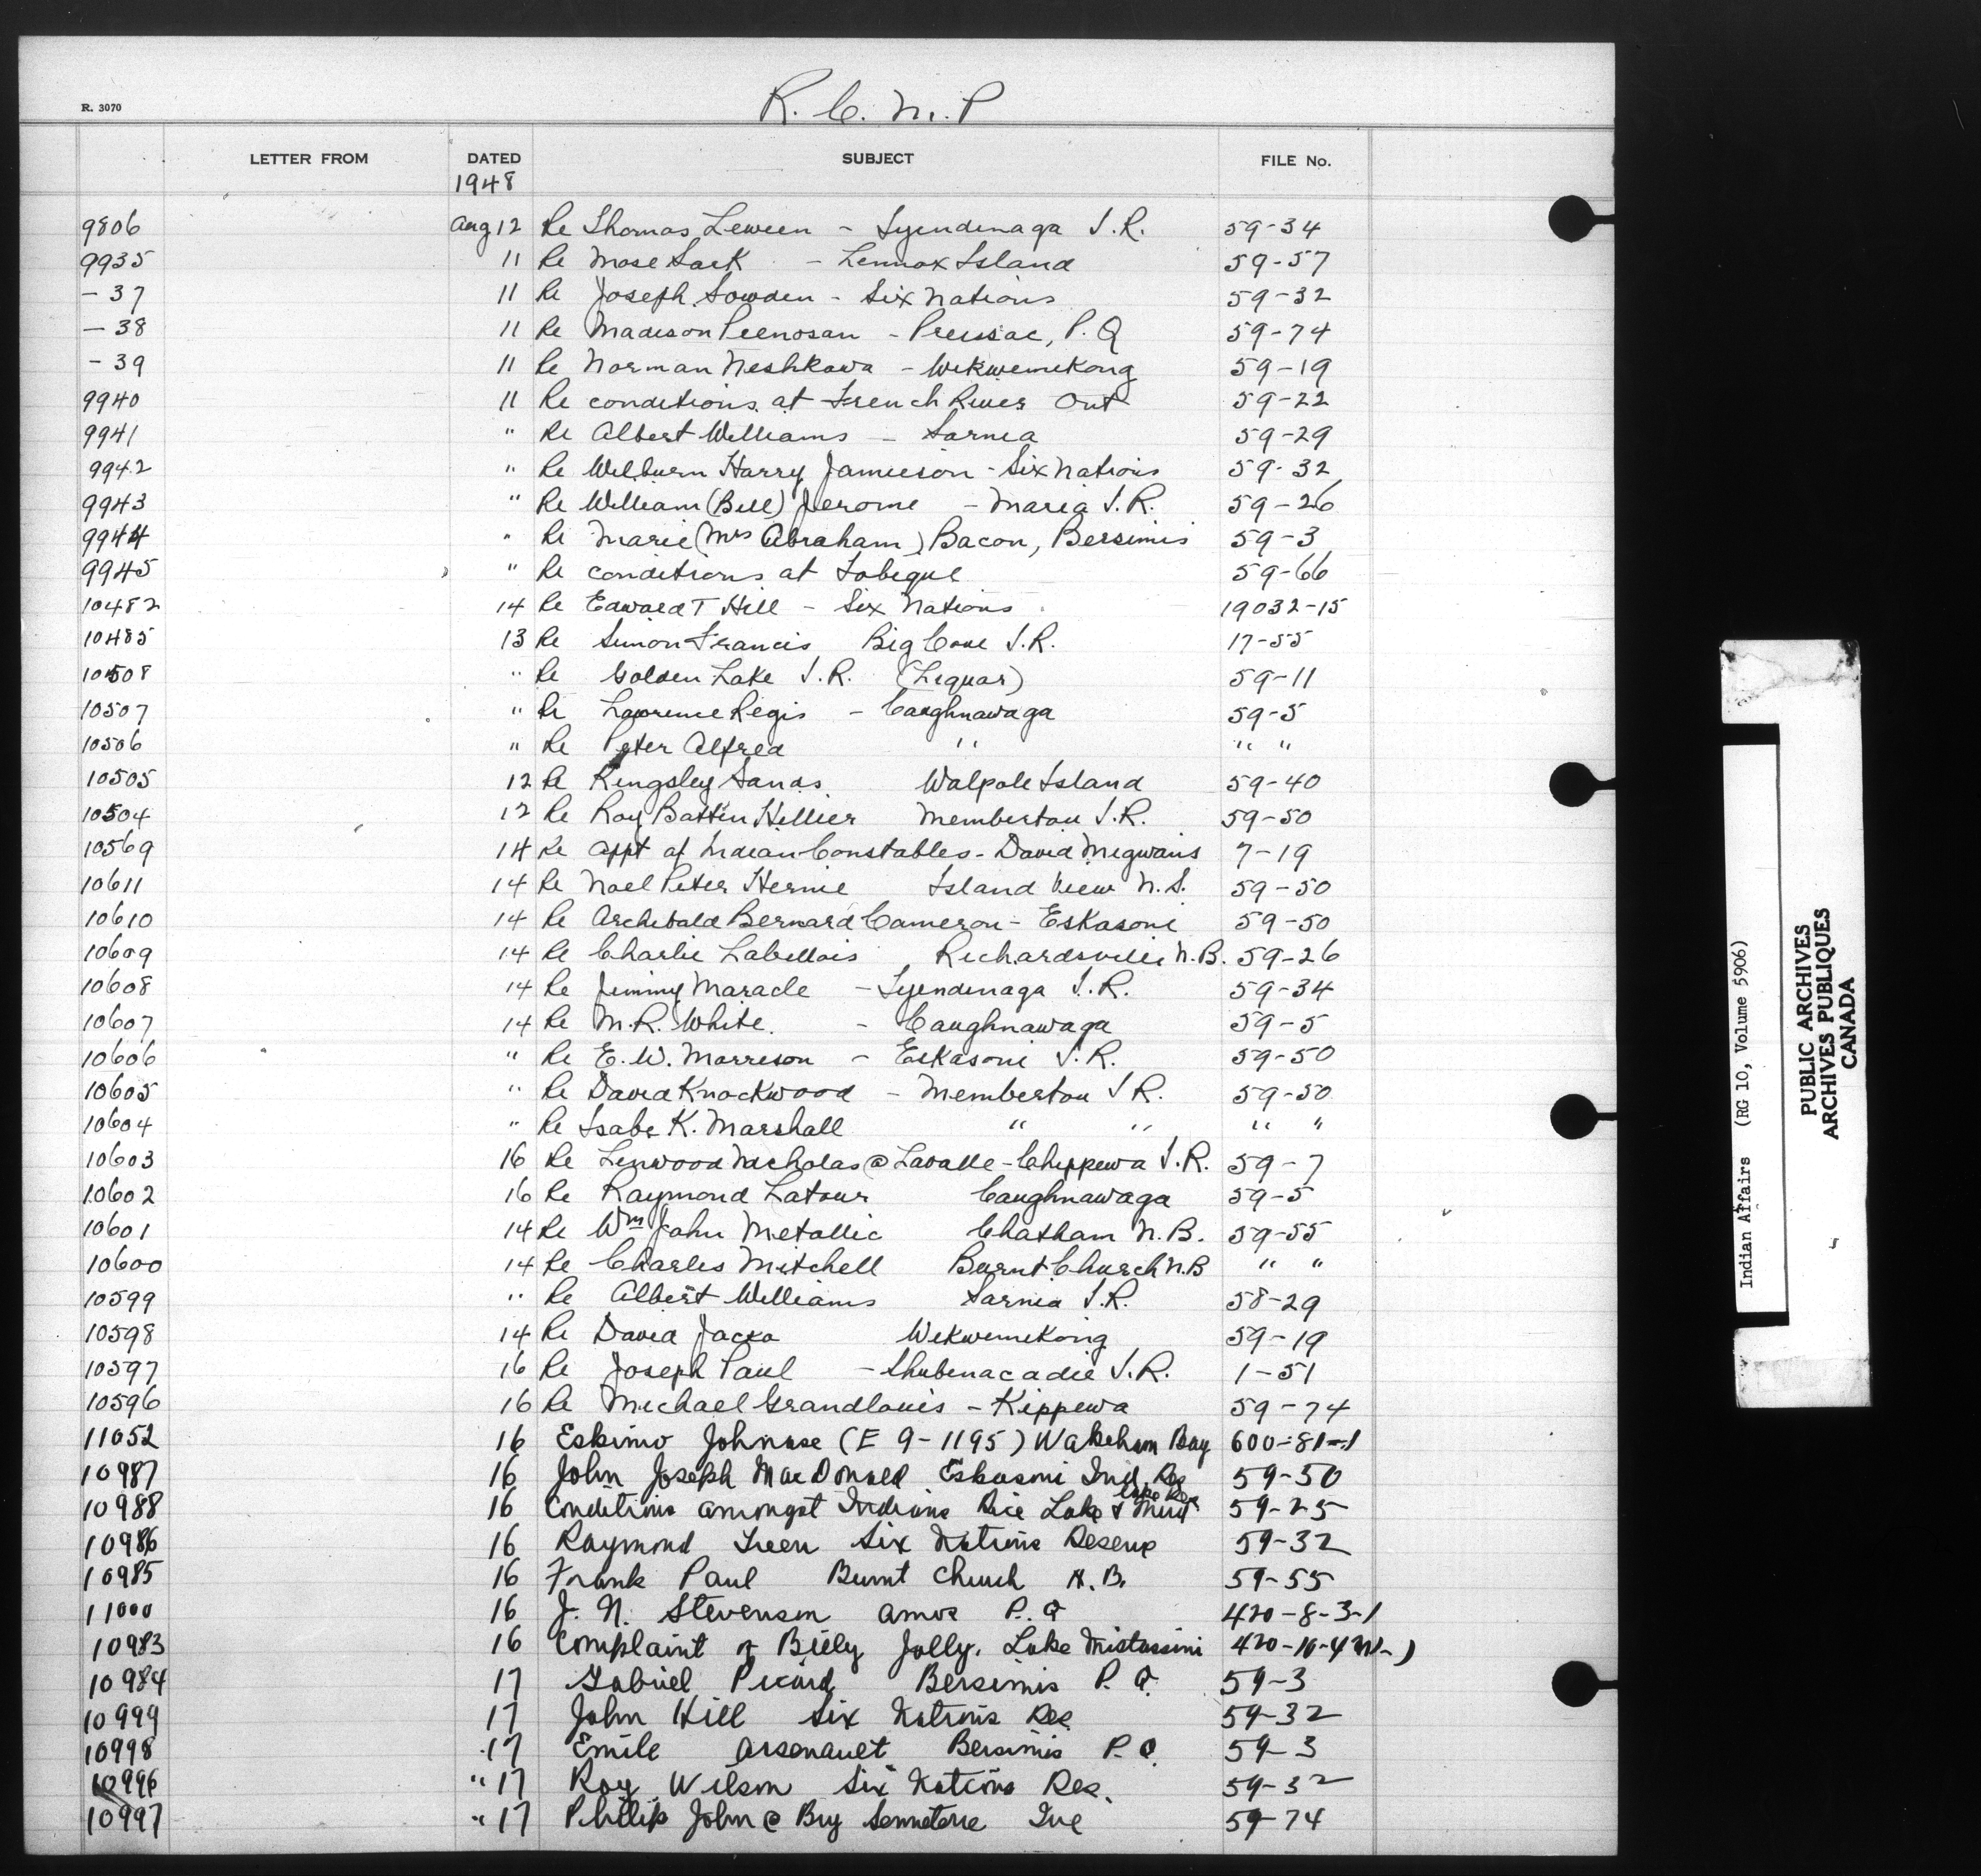 R. 3070
R. C. M. P
LETTER FROM DATED SUBJECT FILE No.
1948
9806 Aug 12 Re Thomas Leween - Tyendenaga I.R. 59-34
9935 11 Re Mose Sark - Lennox Island 59-57
-37 11 Re Joseph Sowden - Six Nations 59-32
-38 11 Re Madeson Penosan - Preissac, P.Q 59-74
-39 11 Re Norman Neshkawa - Wikwemikong 59-19
9940 11 Re conditions at French River Ont 59-22
9941 " Re Albert Williams - Sarnia 59-29
9942 " Re Wilburn Harry Jamieson - Six Nations 59-32
9943 " Re William (Bill) Jerome - Maria I.R. 59-26
9944 " Re Marie (Mrs Abraham) Bacon, Bersimis 59-3
9945 " Re conditions at Tobique 59-66
10482 14 Re Edward T Hill - Six Nations 19032-15
10485 13 Re Simon Francis Big Cove I.R. 17-55
10508 " Re Golden Lake I.R. (Liquor) 59-11
10507 " Re Lawrence Regis - Caughnawaga 59-5
10506 " Re Peter Alfred " " "
10505 12 Re Kingsley Sands Walpole Island 59-40
10504 12 Re Roy Batten Hillier Membertou I.R. 59-50
10569 14 Re appt of Indian Constables - David Megwans 7-19
10611 14 Re Noel Peter Hernie Island View N.S. 59-50
10610 14 Re Archibald Bernard Cameron - Eskasoni 59-50
10609 14 Re Charlie Labillois Richardsville N.B. 59-26
10608 14 Re Jimmy Maracle - Tyendenaga I.R. 59-34
10607 14 Re M.R. White. - Caughnawaga 59-5
10606 " Re E.W. Morrison - Eskasoni I.R. 59-50
10605 " Re David Knockwood - Membertou I R. 59-50
10604 " Re Isabe K. Marshall " " " "
10603 16 Re Linwood Nicholas @ Lavalle - Chippewa I.R. 59-7
10602 16 Re Raymond Latour Caughnawaga 59-5
10601 14 Re Wm John Metallic Chatham N.B. 59-55
10600 14 Re Charles Mitchell Burnt Church N.B " "
10599 " Re Albert Williams Sarnia I.R. 58-29
10598 14 Re David Jacko Wikwemikong 59-19
10597 16 Re Joseph Paul - Shubenacadie I.R. 1-51
10596 16 Re Michael Grandlouis - Kippewa 59-74
11052 16 Eskimo Johnase (E 9-1195) Wakeham Bay 600-81-1
10987 16 John Joseph MacDonald Eskasoni Ind. Res 59-50
10988 16 Conditions amongst Indians Rice Lake & Mud Lake Res 59-25
10986 16 Raymond Green Six Nations Reserve 59-32
10985 16 Frank Paul Burnt Church N.B. 59-55
11000 16 J. N. Stevenson Amos P.Q 420-8-3-1
10983 16 Complaint of Billy Jolly. Lake Mistassini 420-10-4
10984 17 Gabriel Picard Bersimis P.Q. 59-3
10999 17 John Hill Six Nations Res 59-32
10998 17 Emile Arsenault Bersimis P.Q. 59-3
10996 " 17 Roy Wilson Six Nations Res. 59-32
10997 " 17 Philip John @ Senneterre Que 59-74
Indian Affairs (RG 10, Volume 5906)
PUBLIC ARCHIVES
ARCHIVES PUBLIQUES
CANADA